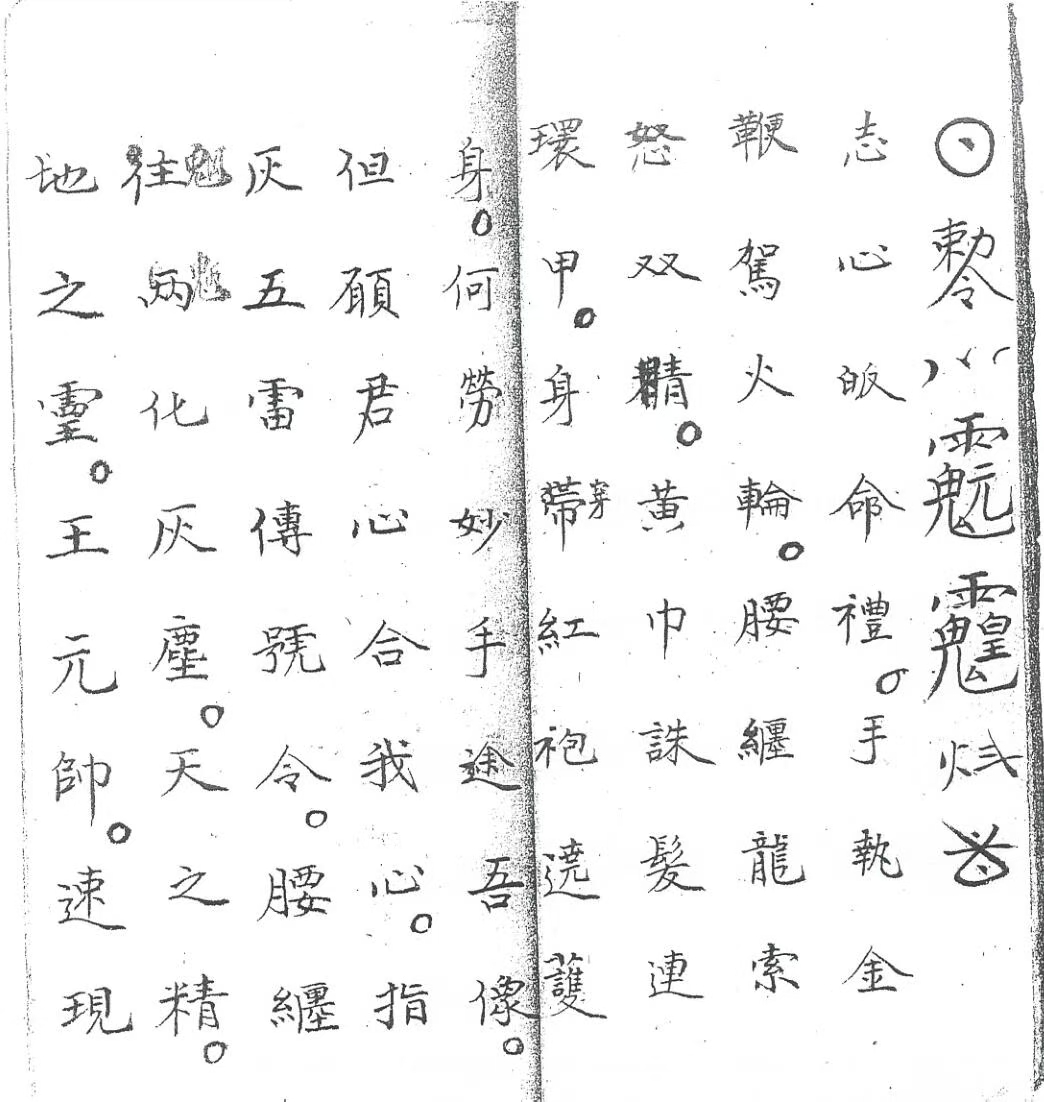 敕令
志心皈命禮。手執金
鞭駕火輪。腰纏龍索
怒双睛。黃巾誅髮連
環甲。身帶穿紅袍遶護
身。何勞妙手途吾像。
但願君心合我心。指
灰五雷傳號令。腰纏
魁往兩化灰塵。天之精。
地之靈。王元帥。速現